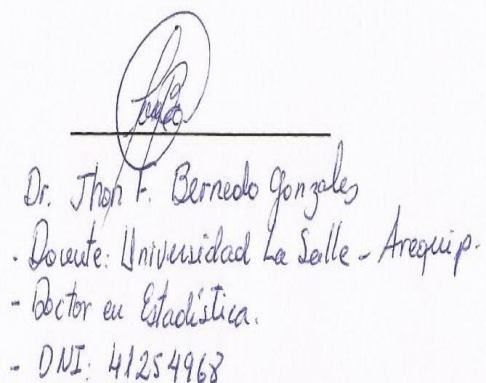 Dr. Jhon F. Bernedo Gonzales
- Docente: Universidad La Salle - Arequip.
- Doctor en Estadística.
- DNI: 41254968